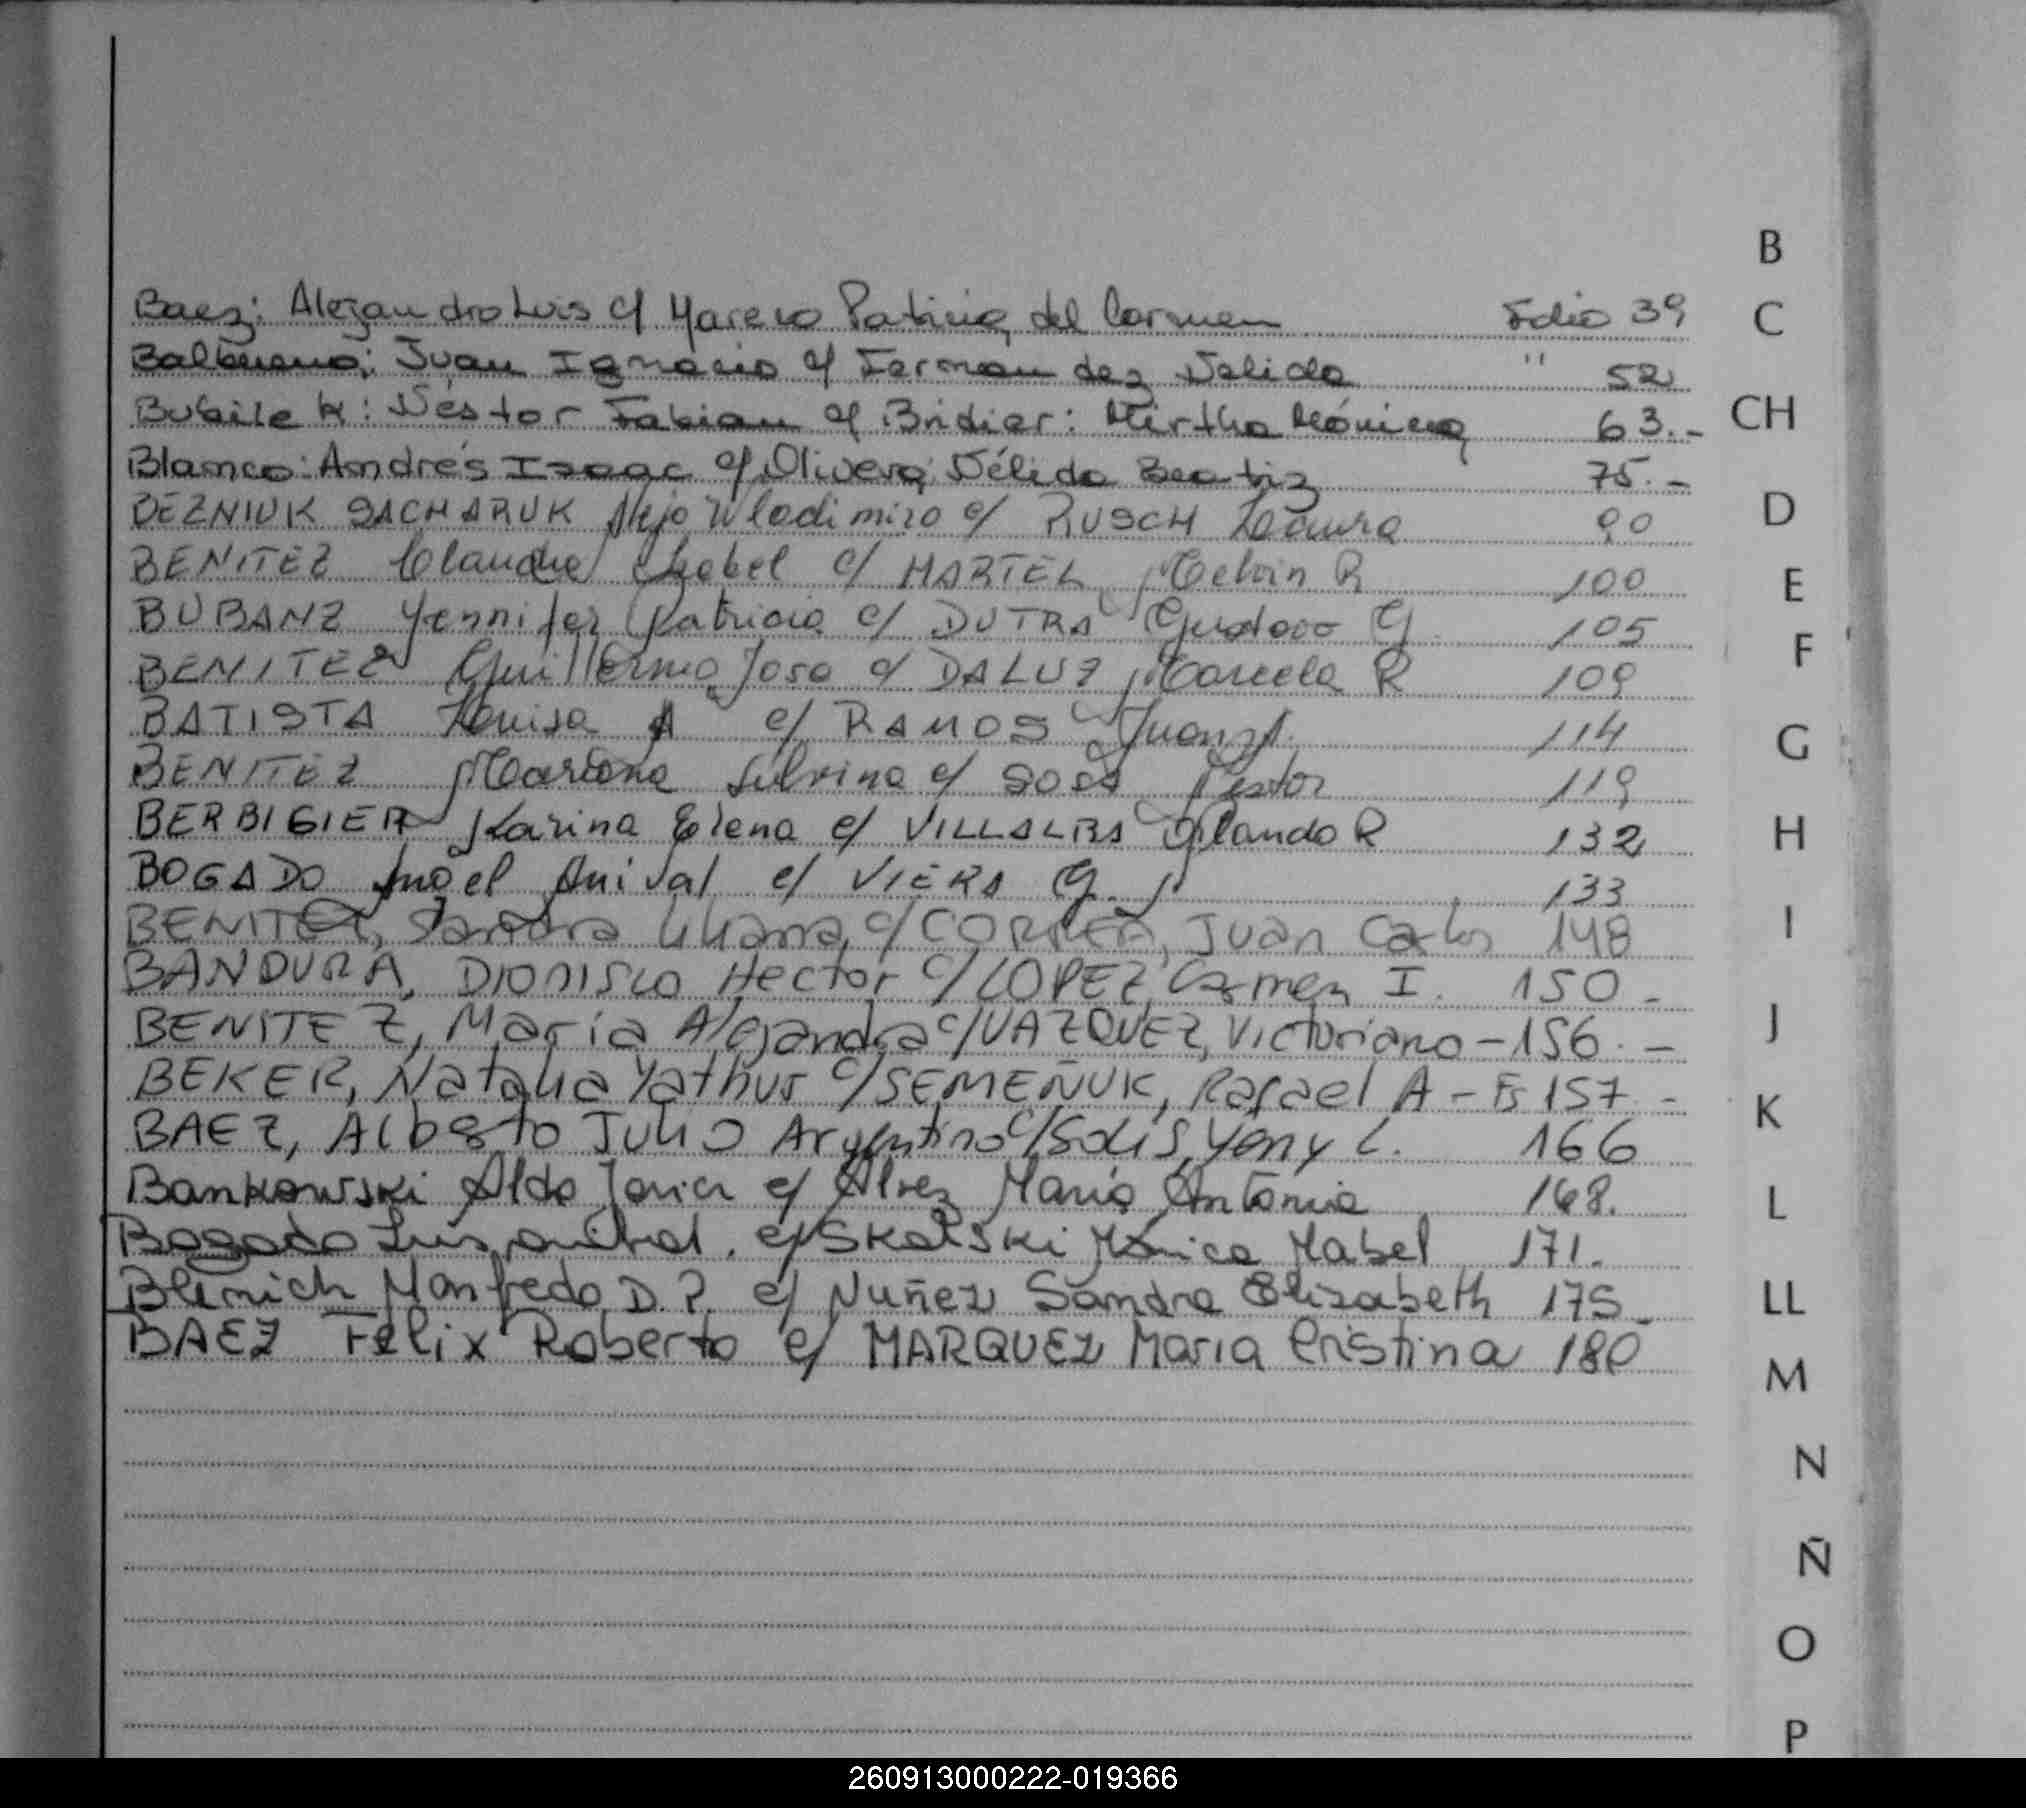 B
Baez: Alejandro Luis c/ Marero Patricia del Carmen Folio 39
C
Balbuena: Juan Ignacio c/ Fernandez Nelida " 52
Bubilek: Néstor Fabian c/ Bridier: Mirtha Mónica 63.-
CH
Blanco: Andrés Isaac c/ Olivera: Nélida Beatriz 75.-
BEZNIUK SACHARUK Alejo Wladimiro c/ RUSCH Laura 90
D
BENITEZ Claudia Isabel c/ MARTEL Melvin R 100
E
BUBANZ Yennifer Patricia c/ DUTRA Gustavo G 105
F
BENITEZ Guillermo Jose c/ DALUZ Marcela R 109
BATISTA Luisa A c/ RAMOS Juan A. 114
G
BENITEZ Mariana Silvina c/ SOSA Nestor 119
BERBIGIER Karina Elena c/ VILLALBA Orlando R 132
H
BOGADO Noel Anival c/ VIERA G. N 133
BENITEZ, Sandra Liliana, c/ CORREA, Juan Carlos 148
I
BANDURA, DIONISIO Hector c/ LOPEZ, Carmen I. 150-
BENITEZ, María Alejandra c/ VAZQUEZ, Victoriano - 156.-
J
BEKER, Natalia Yathus c/ SEMEÑUK, Rafael A - Fs 157.-
K
BAEZ, Alberto Julio Argentino c/ SOLIS, Yeny L. 166
Bankowski Aldo Javier c/ Alvez María Antonia 168.
L
Bogado Luis anibal. c/ SKALSKI Mónica Mabel 171.
Blimich Manfredo D. P. c/ Nuñez Sandra Elizabeth 175
LL
BAEZ Felix Roberto c/ MARQUEZ Maria Cristina 180
M
N
Ñ
O
P
260913000222-019366